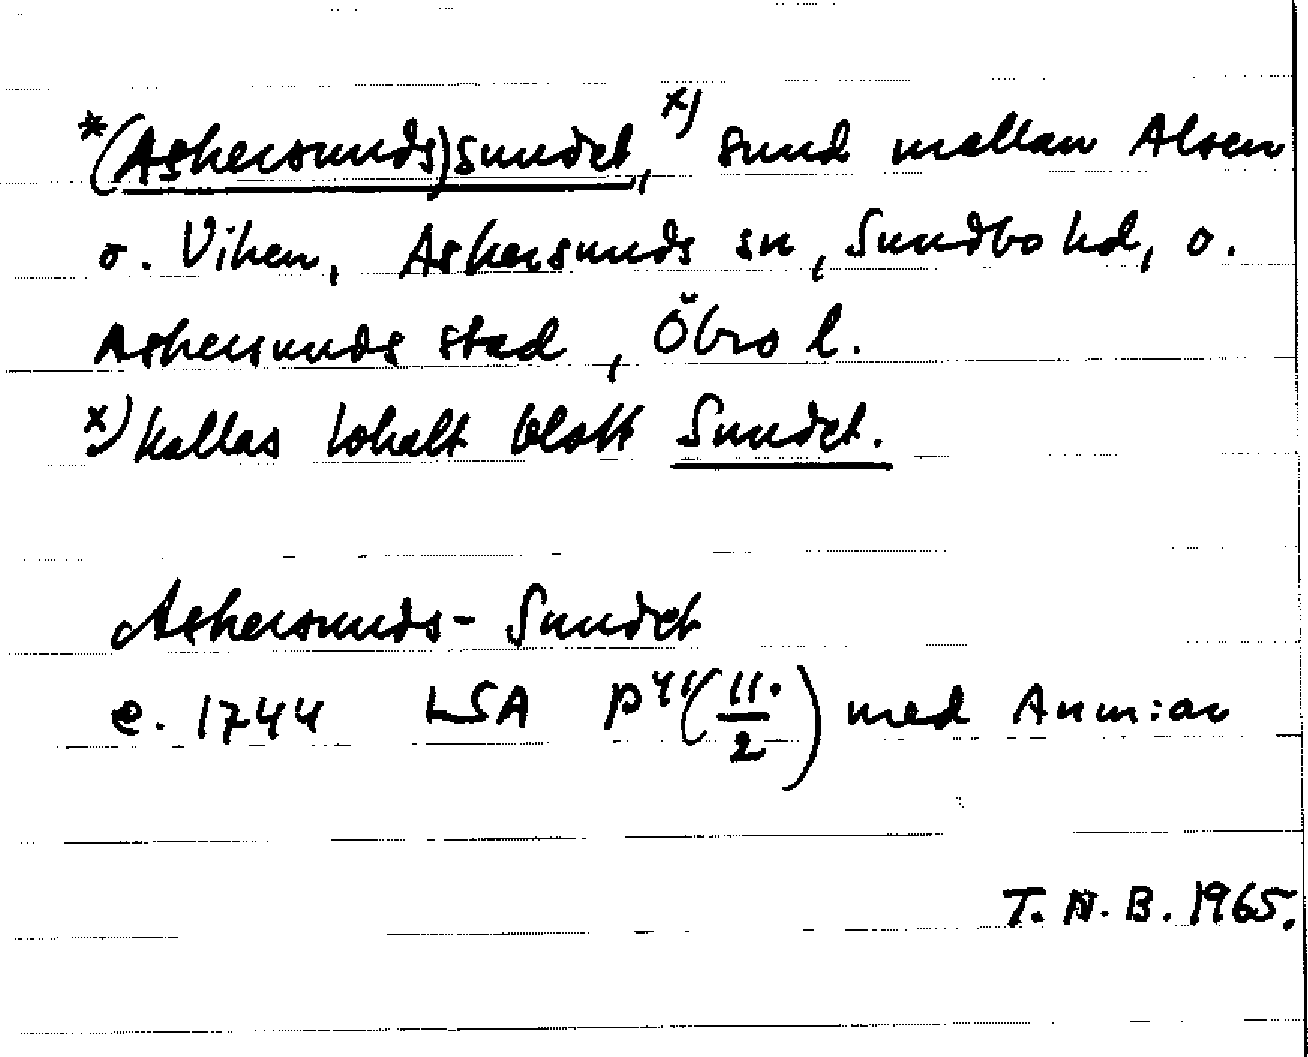 *(Askersunds)sundet, x) sund mellan Alsen
o. Viken, Askersunds sn, Sundbo hd, o.
Askersunds stad, Öbro l.
x) kallas lokalt blott Sundet.
Askersunds-Sundet
e. 1744 LSA P41(11/2) med Anm:ar
T. N. B. 1965.